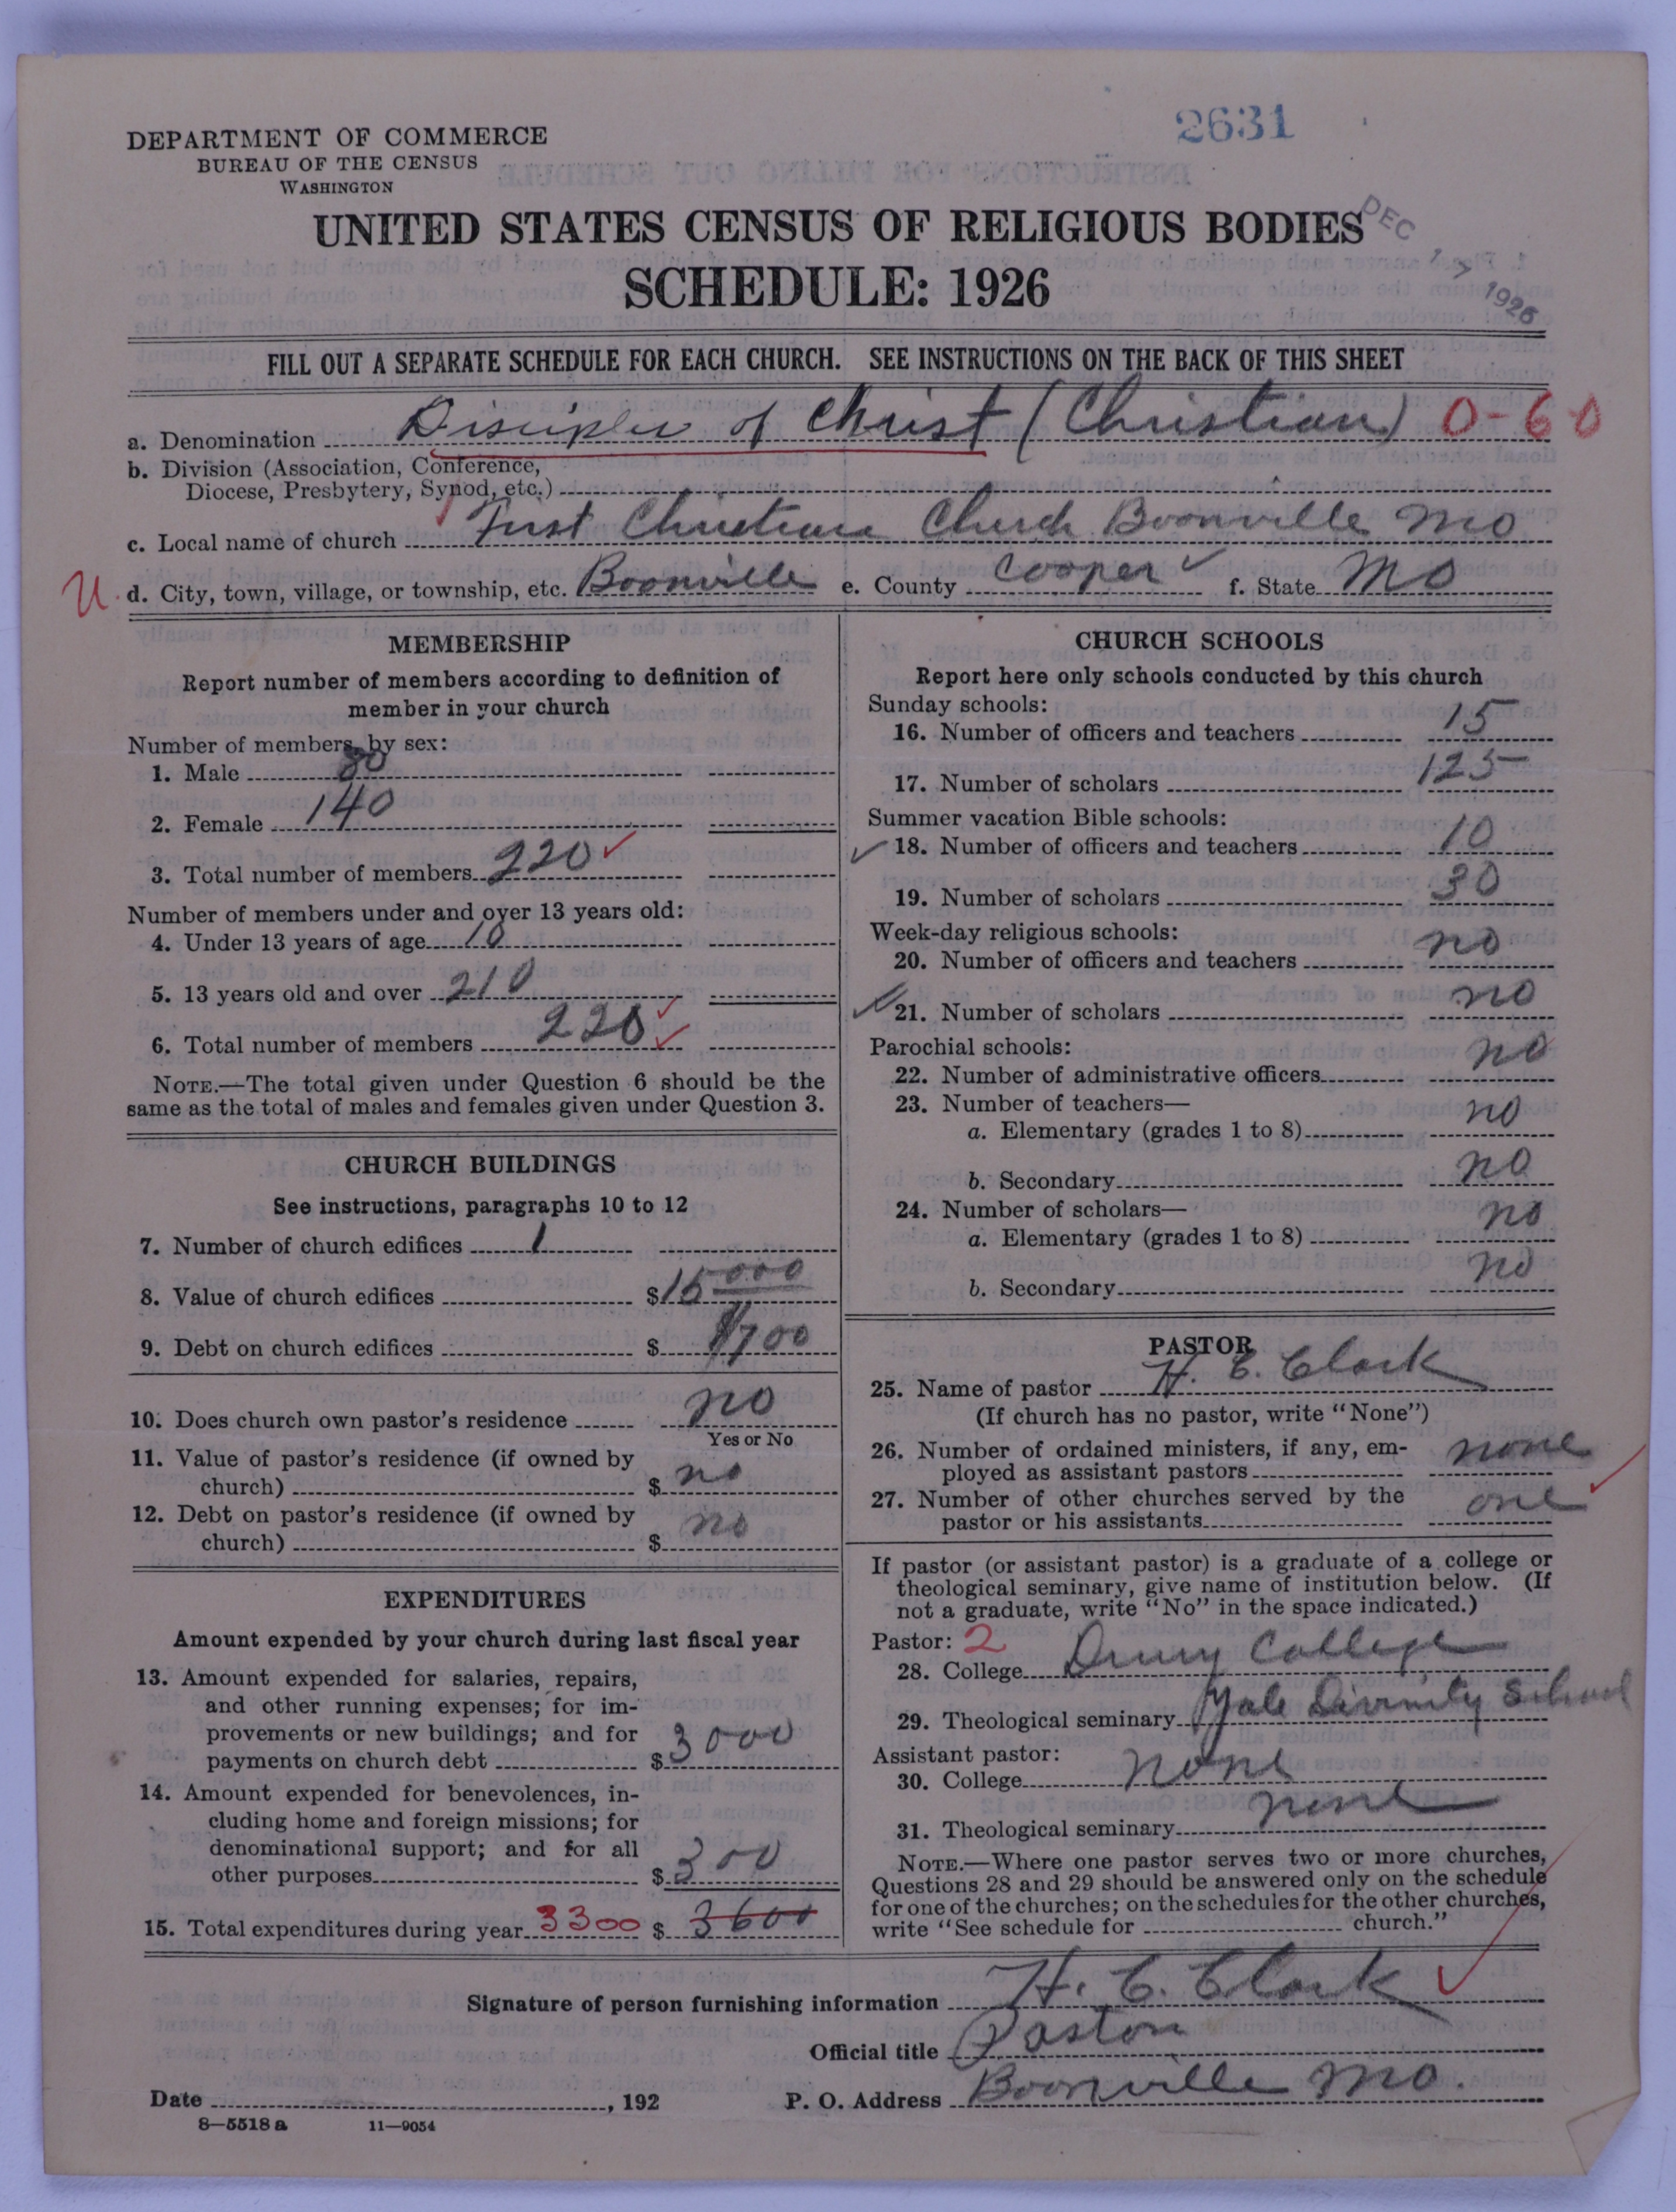 2631
DEPARTMENT OF COMMERCE
BUREAU OF THE CENSUS
WASHINGTON
DEC 17 1926
UNITED STATES CENSUS OF RELIGIOUS BODIES
SCHEDULE: 1926
FILL OUT A SEPARATE SCHEDULE FOR EACH CHURCH. SEE INSTRUCTIONS ON THE BACK OF THIS SHEET
a. Denomination Disciples of Christ (Christian) 0-60
b. Division (Association, Conference,
Diocese, Presbytery, Synod, etc.)
c. Local name of church First Christian Church Boonville Mo
U. d. City, town, village, or township, etc. Boonville e. County Cooper f. State Mo
MEMBERSHIP
Report number of members according to definition of
member in your church
Number of members, by sex:
1. Male 80
2. Female 140
3. Total number of members 220
Number of members under and over 13 years old:
4. Under 13 years of age 10
5. 13 years old and over 210
6. Total number of members 220
NOTE.—The total given under Question 6 should be the
same as the total of males and females given under Question 3.
CHURCH BUILDINGS
See instructions, paragraphs 10 to 12
7. Number of church edifices 1
8. Value of church edifices $15000
9. Debt on church edifices $ 1700
10. Does church own pastor's residence no
Yes or No
11. Value of pastor's residence (if owned by
church) $ no
12. Debt on pastor's residence (if owned by
church) $ no
EXPENDITURES
Amount expended by your church during last fiscal year
13. Amount expended for salaries, repairs,
and other running expenses; for im-
provements or new buildings; and for
payments on church debt $3000
14. Amount expended for benevolences, in-
cluding home and foreign missions; for
denominational support; and for all
other purposes $300
15. Total expenditures during year 3300 $ 3600
CHURCH SCHOOLS
Report here only schools conducted by this church
Sunday schools:
16. Number of officers and teachers 15
17. Number of scholars 125
Summer vacation Bible schools:
18. Number of officers and teachers 10
19. Number of scholars 30
Week-day religious schools:
20. Number of officers and teachers no
21. Number of scholars no
Parochial schools:
22. Number of administrative officers no
23. Number of teachers—
a. Elementary (grades 1 to 8) no
b. Secondary no
24. Number of scholars—
a. Elementary (grades 1 to 8) no
b. Secondary no
PASTOR
25. Name of pastor H. C. Clark
(If church has no pastor, write "None")
26. Number of ordained ministers, if any, em-
ployed as assistant pastors none
27. Number of other churches served by the
pastor or his assistants one
If pastor (or assistant pastor) is a graduate of a college or
theological seminary, give name of institution below. (If
not a graduate, write "No" in the space indicated.)
Pastor: 2
28. College Drury College
29. Theological seminary Yale Divinity School
Assistant pastor:
30. College none
31. Theological seminary none
NOTE.—Where one pastor serves two or more churches,
Questions 28 and 29 should be answered only on the schedule
for one of the churches; on the schedules for the other churches,
write "See schedule for church."
Signature of person furnishing information H. C. Clark
Official title Pastor
Date , 192 P. O. Address Boonville Mo.
8—5518 a 11—9054